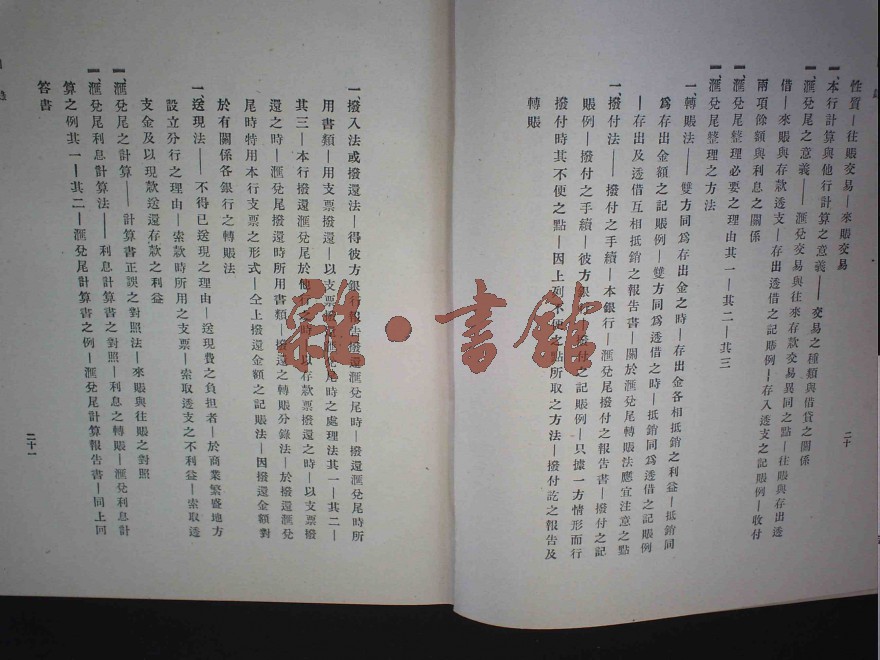 性質—往賬交易—來賬交易
一、本行計算與他行計算之意義——交易之種類與借貸之關係
一、滙兌尾之意義——滙兌交易與往來存款交易異同之點—往賬與存出透
借—來賬與存款透支—存出透借之記賬例—存入透支之記賬例—收付
兩項餘額與利息之關係
一、滙兌尾整理必要之理由其一—其二—其三
一、滙兌尾整理之方法
一、轉賬法——雙方同爲存出金之時—存出金各相抵銷之利益—抵銷同
爲存出金額之記賬例—雙方同爲透借之時—抵銷同爲透借之記賬例
—存出及透借互相抵銷之報告書—關於滙兌尾轉賬法應宜注意之點
一、撥付法——撥付之手續—本銀行—滙兌尾撥付之報告書—撥付之記
賬例—撥付之手續—彼方銀行—撥付之記賬例—只據一方情形而行
撥付時其不便之點—因上列不便之點所取之方法—撥付訖之報告及
轉賬
二十
一、撥入法或撥還法—得彼方銀行報告撥還滙兌尾時—撥還滙兌尾時所
用書類—用支票撥還—以支票撥還滙兌尾時之處理法其一—其二—
其三—本行撥還滙兌尾於他行之時—以存款票撥還之時—以支票撥
還之時—滙兌尾撥還時所用書類—撥還之轉賬分錄法—於撥還滙兌
尾時特用本行支票之形式—仝上撥還金額之記賬法—因撥還金額對
於有關係各銀行之轉賬法
一、送現法——不得已送現之理由—送現費之負担者—於商業繁盛地方
設立分行之理由—索款時所用之支票—索取透支之不利益—索取透
支金及以現款送還存款之利益
一、滙兌尾之計算——計算書正誤之對照法—來賬與往賬之對照
一、滙兌尾利息計算法——利息計算書之對照—利息之轉賬—滙兌利息計
算之例其一—其二—滙兌尾計算書之例—滙兌尾計算報告書—同上回
答書
二十一
雜·書館